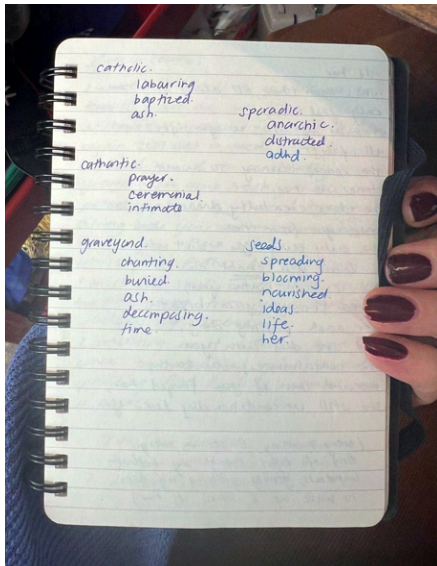 catholic.
labouring
baptized.
ash.
cathantic.
prayer.
ceremonial.
intimate
graveyard.
chanting.
buried.
ash.
decomposing.
time.
sporadic.
anarchic.
distracted.
adhd.
seeds.
spreading
blooming.
nourished.
ideas.
life.
her.